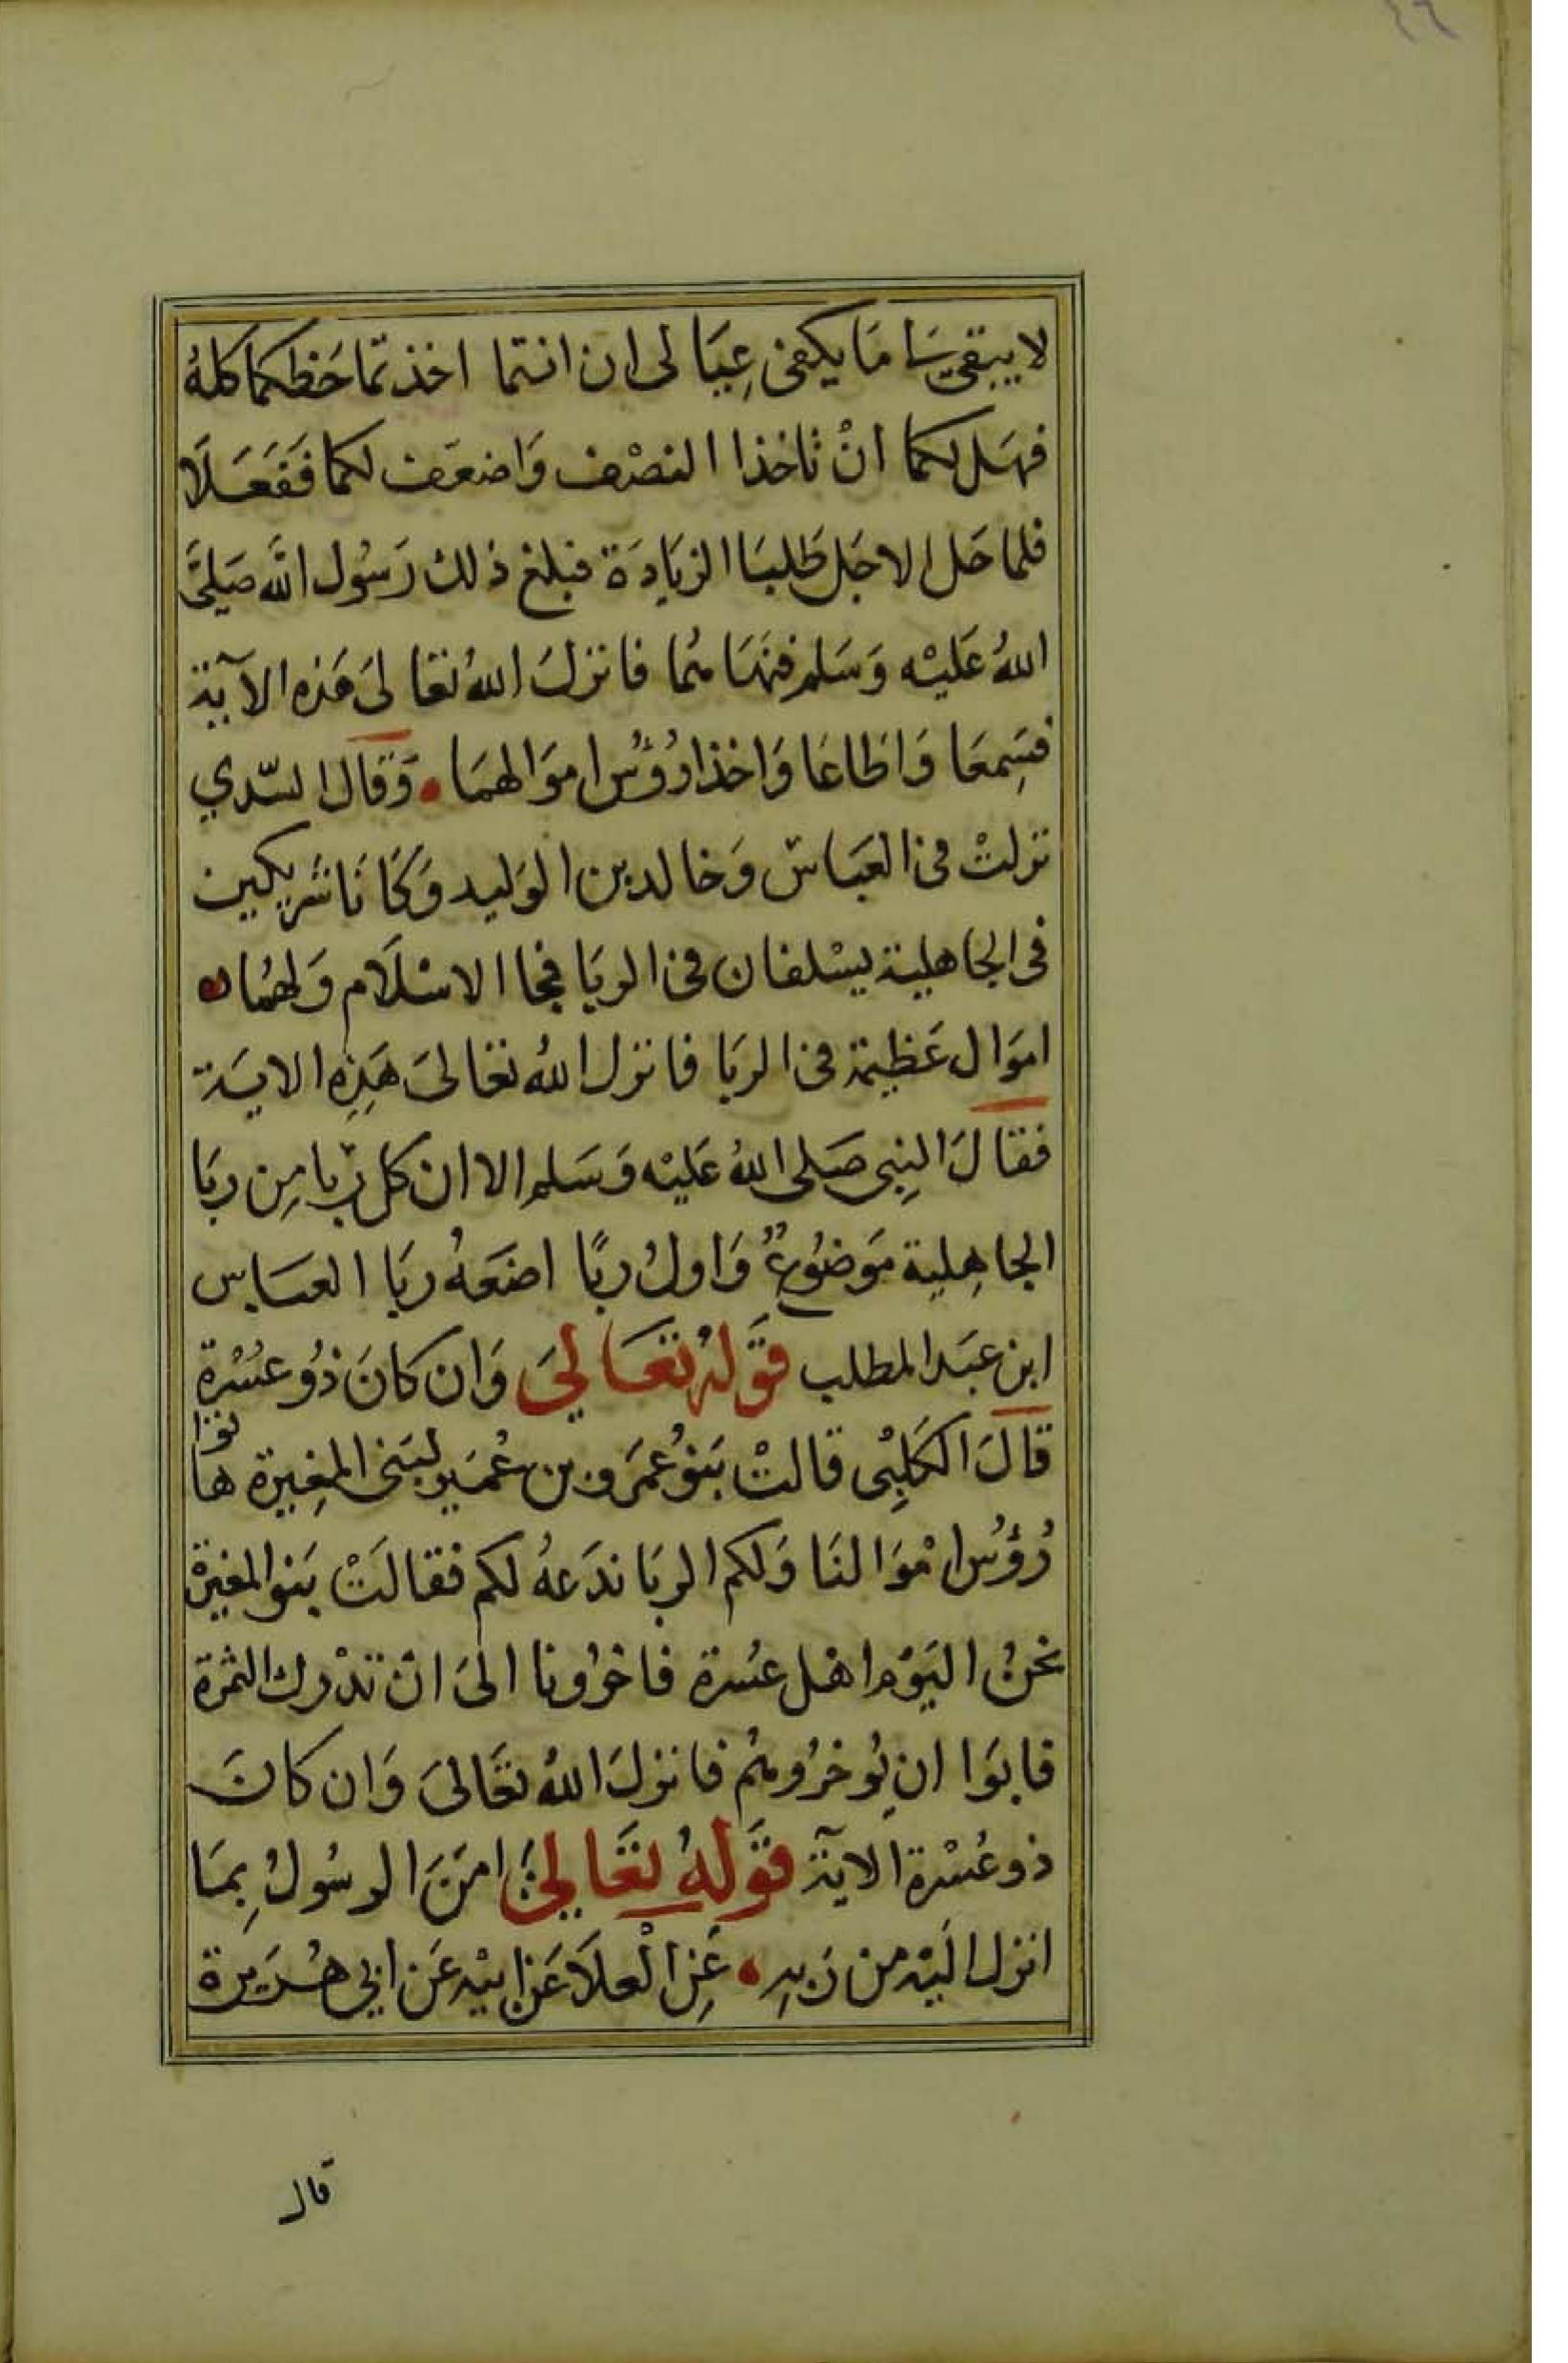 لا يبقى مَا يكفى عِيَالى ان انتما اخذتما حَظكما كلهُ
فهَل لكما انْ تاخذا النصْف وَاضعَف لكما ففَعَلَا
فلما حَل الاجَل طَلبَا الزيَادَة فبلغ ذلك رَسُول الله صَلىَّ
اللهُ عَليْه وَسَلم فنهَاهُما فانزلَ اللهُ تعَالىَ هَذه الآية
فسَمِعَا وَاطَاعَا وَاخذا رُؤُس اموَالهمَا وَقالَ السّدي
نزلتْ فى العَبَاس وَخالد بن الوَليد وَكَانَا شَريكين
فى الجاهلية يسْلفان فى الربَا فجا الاسْلَام وَلهُما
اموَال عَظيمة فى الربَا فانزل اللهُ تعَالىَ هَذِه الايَة
فقالَ النبِى صَلى اللهُ عَليْه وَسَلم الا ان كل ربا مِن ربَا
الجاهِلية مَوضُوعٌ وَاولُ ربًا اضعَهُ ربَا العبَاس
ابن عبَد المطلب قوَلهُ تعَالىَ وَان كانَ ذُو عسُْرة
قالَ الكَلبِى قالتْ بَنوُ عمَرو بن عُمَير لبَنى المغِيرة هاتوا
رُؤُس امْوَالنَا وَلكم الربَا ندَعهُ لكم فقالَتْ بَنوا المغيرة
نحنُ اليَوْم اهْل عسُرة فاخرُونا الىَ انْ تدْرك الثمرَة
فابوَا ان يُوخرُوهُم فانزلَ اللهُ تعَالىَ وَان كانَ
ذو عُسْرة الآية قوَلهُ تعَالىَ امَنَ الرسُولُ بِمَا
انزل الَيْه من رَبهِ عَنِ الْعلَا عَن ابيْه عَن ابي هُرَيرة
قال